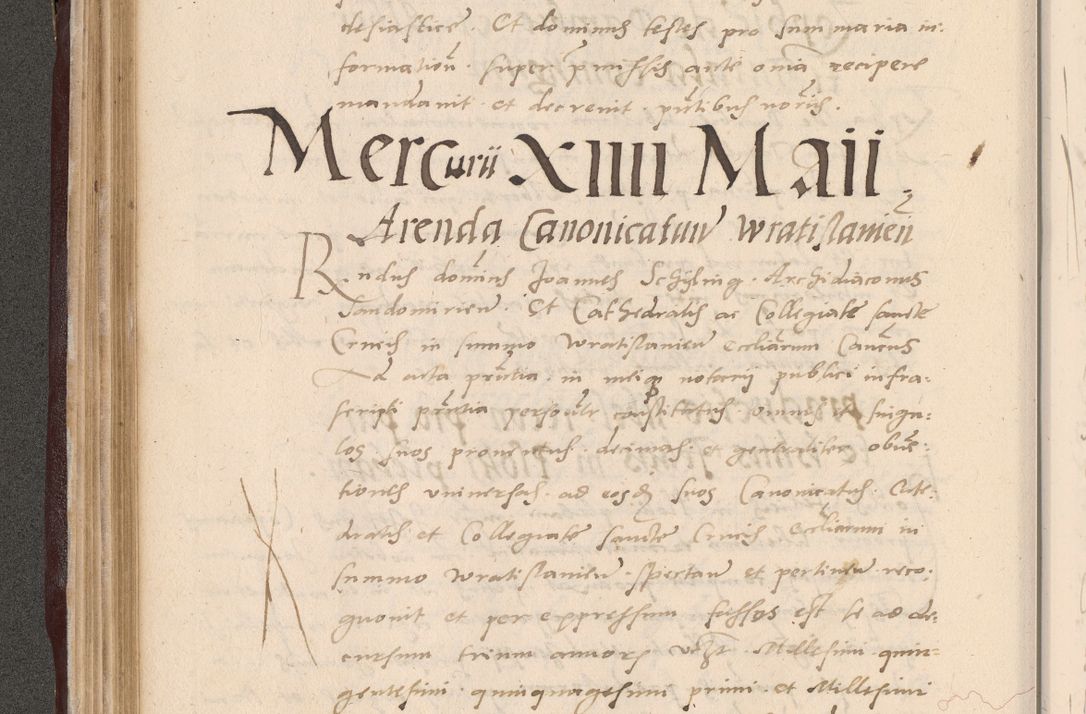 clesiasticę. Et dominus testes pro summaria in-
formation̄. super p̄missis ante om̄ia recipere
mandavit et decrevit. pn̄tibus nōtis.
Mercurii XIIII Maii
Arenda Canonicatuū Wratislavień
R̄ndus dominus Joannes Schyling Archidiaconus
Sandomirień. Et Cathedralis ac Collegiate sancte
Crucis in summo Wratislavień eccliarum Canćus
Ad acta pn̄tia in meiq̄ notarij publici infra-
scripti pn̄tia personalr constitutus omnes et singu-
los suos proventus decimas et generaliter obven-
tiones universas ad eosd suos Canonicatus Cate-
dralis et Collegiate sancte Crucis Eccliarum in
summo Wratislavień spectań et pertineń reco-
gnovit et per expressum fassus est se ad de-
cursum trium annorȝ vȝt Millesimi quin-
gentesimi quinquagesimi primi et Millesimi